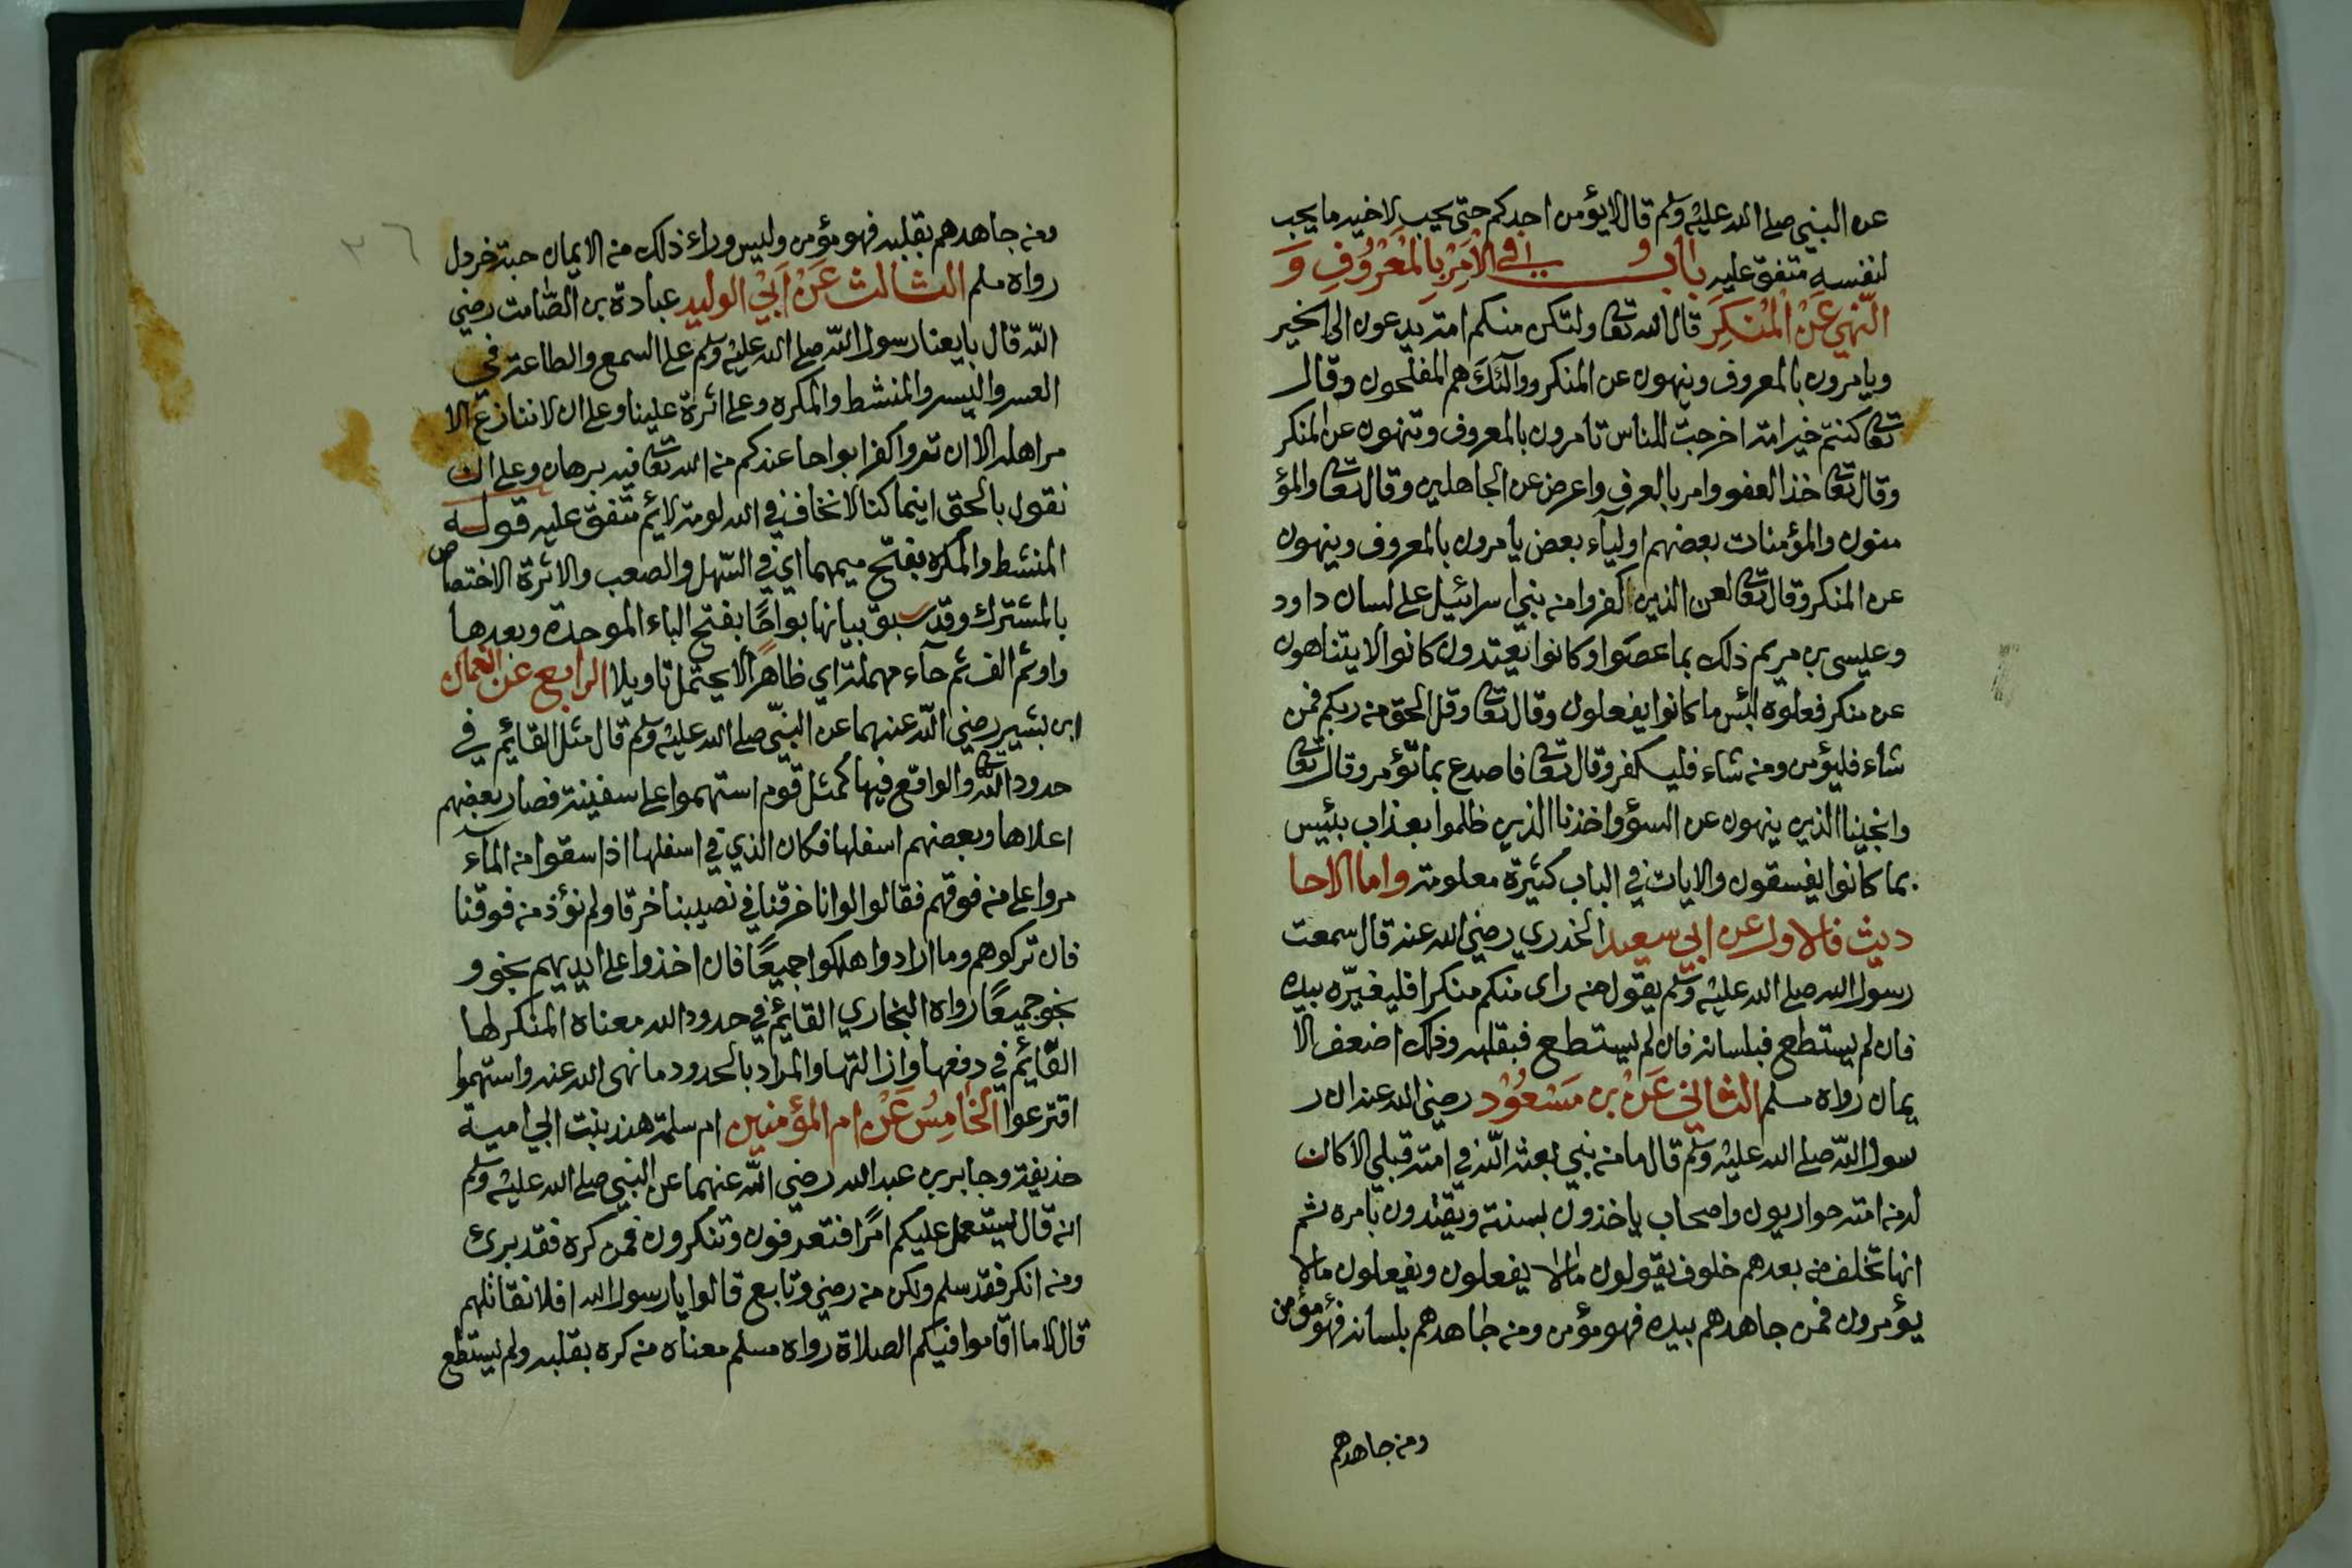 عن النبي صلى الله عليه وسلم قال لا يؤمن احدكم حتى يحب لاخيه ما يحب
لنفسه متفق عليه باب في الْاَمْرِ بِالْمَعْرُوفِ وَ
النَّهيِ عَنْ الْمُنْكَرِ قال الله تعا ولتكن منكم امة يدعون الى الخير
ويامرون بالمعروف وينهون عن المنكر واولئك هم المفلحون وقال
تعا كنتم خير امة اخرجت للناس تامرون بالمعروف وتنهون عن المنكر
وقال تعا خذ العفو وامر بالعرف واعرض عن الجاهلين وقال تعا والمؤ
منون والمؤمنات بعضهم اولياء بعض يأمرون بالمعروف وينهون
عن المنكر وقال تعا لعن الذين كفروا من بني اسرائيل على لسان داود
وعيسى بن مريم ذلك بما عصوا وكانوا يعتدون كانوا لا يتناهون
عن منكر فعلوه لبئس ما كانوا يفعلون وقال تعا وقل الحق من ربكم فمن
شاء فليؤمن ومن شاء فليكفر وقال تعا فاصدع بما تؤمر وقال تعا
وانجينا الذين ينهون عن السوء واخذنا الذين ظلموا بعذاب بئيس
بما كانوا يفسقون والايات في الباب كثيرة معلومة واما الاحا
ديث فالاول عن ابي سعيد الخدري رضي الله عنه قال سمعت
رسول الله صلى الله عليه وسلم يقول من راى منكم منكرا فليغيّره بيده
فان لم يستطع فبلسانه فان لم يستطع فبقلبه وذلك اضعف الا
يمان رواه مسلم الثاني عَنْ بن مَسْعُوْد رضي الله عنه ان ر
سول الله صلى الله عليه وسلم قال ما من نبي بعثه الله في امة قبلي الا كان
له من امته حواريون واصحاب ياخذون بسنته ويقتدون بامره ثم
انها تخلف من بعدهم خلوف يقولون مالا يفعلون ويفعلون مالا
يؤمرون فمن جاهدهم بيده فهو مؤمن ومن جاهدهم بلسانه فهو مؤمن
ومن جاهدهم
٣٦
ومن جاهدهم بقلبه فهو مؤمن وليس وراء ذلك من الايمان حبة خردل
رواه مسلم الثالث عَنْ اَبِيْ الوليد عبادة بن الصّامت رضي
الله قال بايعنا رسول الله صلى الله عليه وسلم على السمع والطاعة في
العسر واليسر والمنشط والمكره وعلى اثرة علينا وعلى ان لا ننازع الا
مر اهله الا ان تروا كفرا بواحا عندكم من الله تعا فيه برهان وعلى ان
نقول بالحق اينما كنا لا نخاف في الله لومة لائم متفق عليه قوله
المنشط والمكره بفتح ميمهما اي في السّهل والصعب والاثرة الاختصاص
بالمشترك وقد سبق بيانها بواحًا بفتح الباء الموحدة وبعدها
واو ثم الف ثم حآء مهملة اي ظاهرًا لا يحتمل تاويلا الرابع عن النعمان
ابن بشير رضي الله عنهما عن النبي صلى الله عليه وسلم قال مثل القائم في
حدود الله تعا والواقع فيها كمثل قوم استهموا على سفينة فصار بعضهم
اعلاها وبعضهم اسفلها فكان الذي في اسفلها اذا سقوا من المآء
مروا على من فوقهم فقالوا لوانا خرقنا في نصيبنا خرقا ولم نؤذ من فوقنا
فان تركوهم وما ارادوا هلكوا جميعًا فان اخذوا على ايديهم نجو و
نجو جميعًا رواه البخاري القائم في حدود الله معناه المنكر لها
القائم في دفعها وازالتها والمراد بالحدود ما نهى الله عنه واستهموا
اقترعوا الخامِسُ عَنْ ام المؤمنين ام سلمة هند بنت ابي امية
حذيفة وجابر بن عبد الله رضي الله عنهما عن النبي صلى الله عليه وسلم
انه قال يستعمل عليكم امرًا فتعرفون وتنكرون فمن كره فقد برئ
ومن انكر فقد سلم ولكن من رضي وتابع قالوا يا رسول الله افلا نقاتلهم
قال لا ما اقاموا فيكم الصلاة رواه مسلم معناه من كره بقلبه ولم يستطع